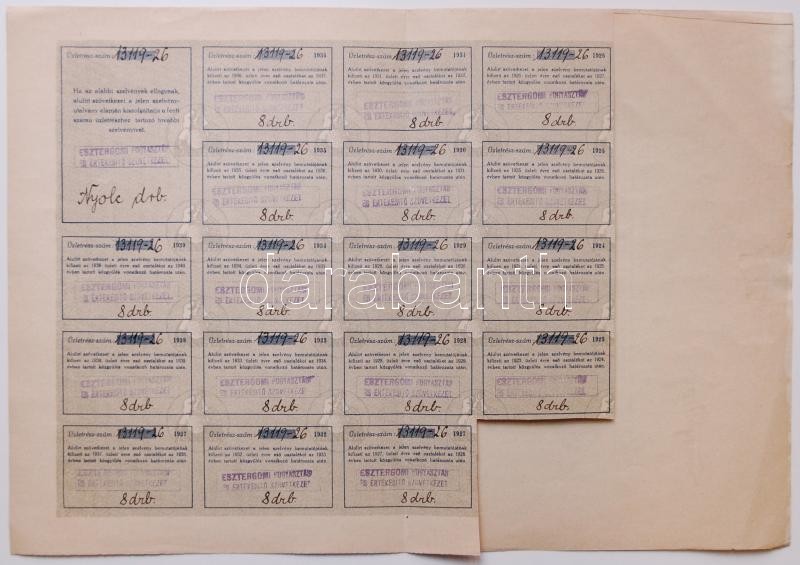 Üzletrész-szám 13119-26
Ha az alábbi szelvények elfogynak,
alulirt szövetkezet a jelen szelvény-
utalvány alapján kiszolgáltatja a fenti
számu üzletrészhez tartozó további
szelvényeket.
ESZTERGOMI FOGYASZTÁSI
ÉS ÉRTÉKESITŐ SZÖVETKEZET
Nyolc drb.
Üzletrész-szám 13119-26 1936
Alulirt szövetkezet a jelen szelvény bemutatójának
kifizeti az 1936. üzleti évre eső osztalékot az 1937.
évben tartott közgyülés vonatkozó határozata után.
ESZTERGOMI FOGYASZTÁSI
ÉS ÉRTÉKESITŐ SZÖVETKEZET
8 drb.
Üzletrész-szám 13119-26 1931
Alulirt szövetkezet a jelen szelvény bemutatójának
kifizeti az 1931. üzleti évre eső osztalékot az 1932.
évben tartott közgyülés vonatkozó határozata után.
ESZTERGOMI FOGYASZTÁSI
ÉS ÉRTÉKESITŐ SZÖVETKEZET
8 drb.
Üzletrész-szám 13119-26 1926
Alulirt szövetkezet a jelen szelvény bemutatójának
kifizeti az 1926. üzleti évre eső osztalékot az 1927.
évben tartott közgyülés vonatkozó határozata után.
ESZTERGOMI FOGYASZTÁSI
ÉS ÉRTÉKESITŐ SZÖVETKEZET
8 drb.
Üzletrész-szám 13119-26 1935
Alulirt szövetkezet a jelen szelvény bemutatójának
kifizeti az 1935. üzleti évre eső osztalékot az 1936.
évben tartott közgyülés vonatkozó határozata után.
ESZTERGOMI FOGYASZTÁSI
ÉS ÉRTÉKESITŐ SZÖVETKEZET
8 drb.
Üzletrész-szám 13119-26 1930
Alulirt szövetkezet a jelen szelvény bemutatójának
kifizeti az 1930. üzleti évre eső osztalékot az 1931.
évben tartott közgyülés vonatkozó határozata után.
ESZTERGOMI FOGYASZTÁSI
ÉS ÉRTÉKESITŐ SZÖVETKEZET
8 drb.
Üzletrész-szám 13119-26 1925
Alulirt szövetkezet a jelen szelvény bemutatójának
kifizeti az 1925. üzleti évre eső osztalékot az 1926.
évben tartott közgyülés vonatkozó határozata után.
ESZTERGOMI FOGYASZTÁSI
ÉS ÉRTÉKESITŐ SZÖVETKEZET
8 drb.
Üzletrész-szám 13119-26 1939
Alulirt szövetkezet a jelen szelvény bemutatójának
kifizeti az 1939. üzleti évre eső osztalékot az 1940.
évben tartott közgyülés vonatkozó határozata után.
8 drb.
Üzletrész-szám 13119-26 1934
Alulirt szövetkezet a jelen szelvény bemutatójának
kifizeti az 1934. üzleti évre eső osztalékot az 1935.
évben tartott közgyülés vonatkozó határozata után.
ESZTERGOMI
8 drb.
Üzletrész-szám 13119-26 1929
Alulirt szövetkezet a jelen szelvény bemutatójának
kifizeti az 1929. üzleti évre eső osztalékot az 1930.
évben tartott közgyülés vonatkozó határozata után.
8 drb.
Üzletrész-szám 13119-26 1924
Alulirt szövetkezet a jelen szelvény bemutatójának
kifizeti az 1924. üzleti évre eső osztalékot az 1925.
évben tartott közgyülés vonatkozó határozata után.
8 drb.
darabanth
Üzletrész-szám 13119-26 1938
Alulirt szövetkezet a jelen szelvény bemutatójának
kifizeti az 1938. üzleti évre eső osztalékot az 1939.
évben tartott közgyülés vonatkozó határozata után.
8 drb.
Üzletrész-szám 13119-26 1933
Alulirt szövetkezet a jelen szelvény bemutatójának
kifizeti az 1933. üzleti évre eső osztalékot az 1934.
évben tartott közgyülés vonatkozó határozata után.
ESZTERGOMI FOGYASZTÁSI
ÉS ÉRTÉKESITŐ SZÖVETKEZET
8 drb.
Üzletrész-szám 13119-26 1928
Alulirt szövetkezet a jelen szelvény bemutatójának
kifizeti az 1928. üzleti évre eső osztalékot az 1929.
évben tartott közgyülés vonatkozó határozata után.
ESZTERGOMI FOGYASZTÁSI
ÉS ÉRTÉKESITŐ SZÖVETKEZET
8 drb.
Üzletrész-szám 13119-26 1923
Alulirt szövetkezet a jelen szelvény bemutatójának
kifizeti az 1923. üzleti évre eső osztalékot az 1924.
évben tartott közgyülés vonatkozó határozata után.
ESZTERGOMI FOGYASZTÁSI
8 drb.
Üzletrész-szám 13119-26 1937
Alulirt szövetkezet a jelen szelvény bemutatójának
kifizeti az 1937. üzleti évre eső osztalékot az 1938.
évben tartott közgyülés vonatkozó határozata után.
ESZTERGOMI FOGYASZTÁSI
ÉS ÉRTÉKESITŐ SZÖVETKEZET
8 drb.
Üzletrész-szám 13119-26 1932
Alulirt szövetkezet a jelen szelvény bemutatójának
kifizeti az 1932. üzleti évre eső osztalékot az 1933.
évben tartott közgyülés vonatkozó határozata után.
ESZTERGOMI FOGYASZTÁSI
ÉS ÉRTÉKESITŐ SZÖVETKEZET
8 drb.
Üzletrész-szám 13119-26 1927
Alulirt szövetkezet a jelen szelvény bemutatójának
kifizeti az 1927. üzleti évre eső osztalékot az 1928.
évben tartott közgyülés vonatkozó határozata után.
ESZTERGOMI FOGYASZTÁSI
ÉS ÉRTÉKESITŐ SZÖVETKEZET
8 drb.